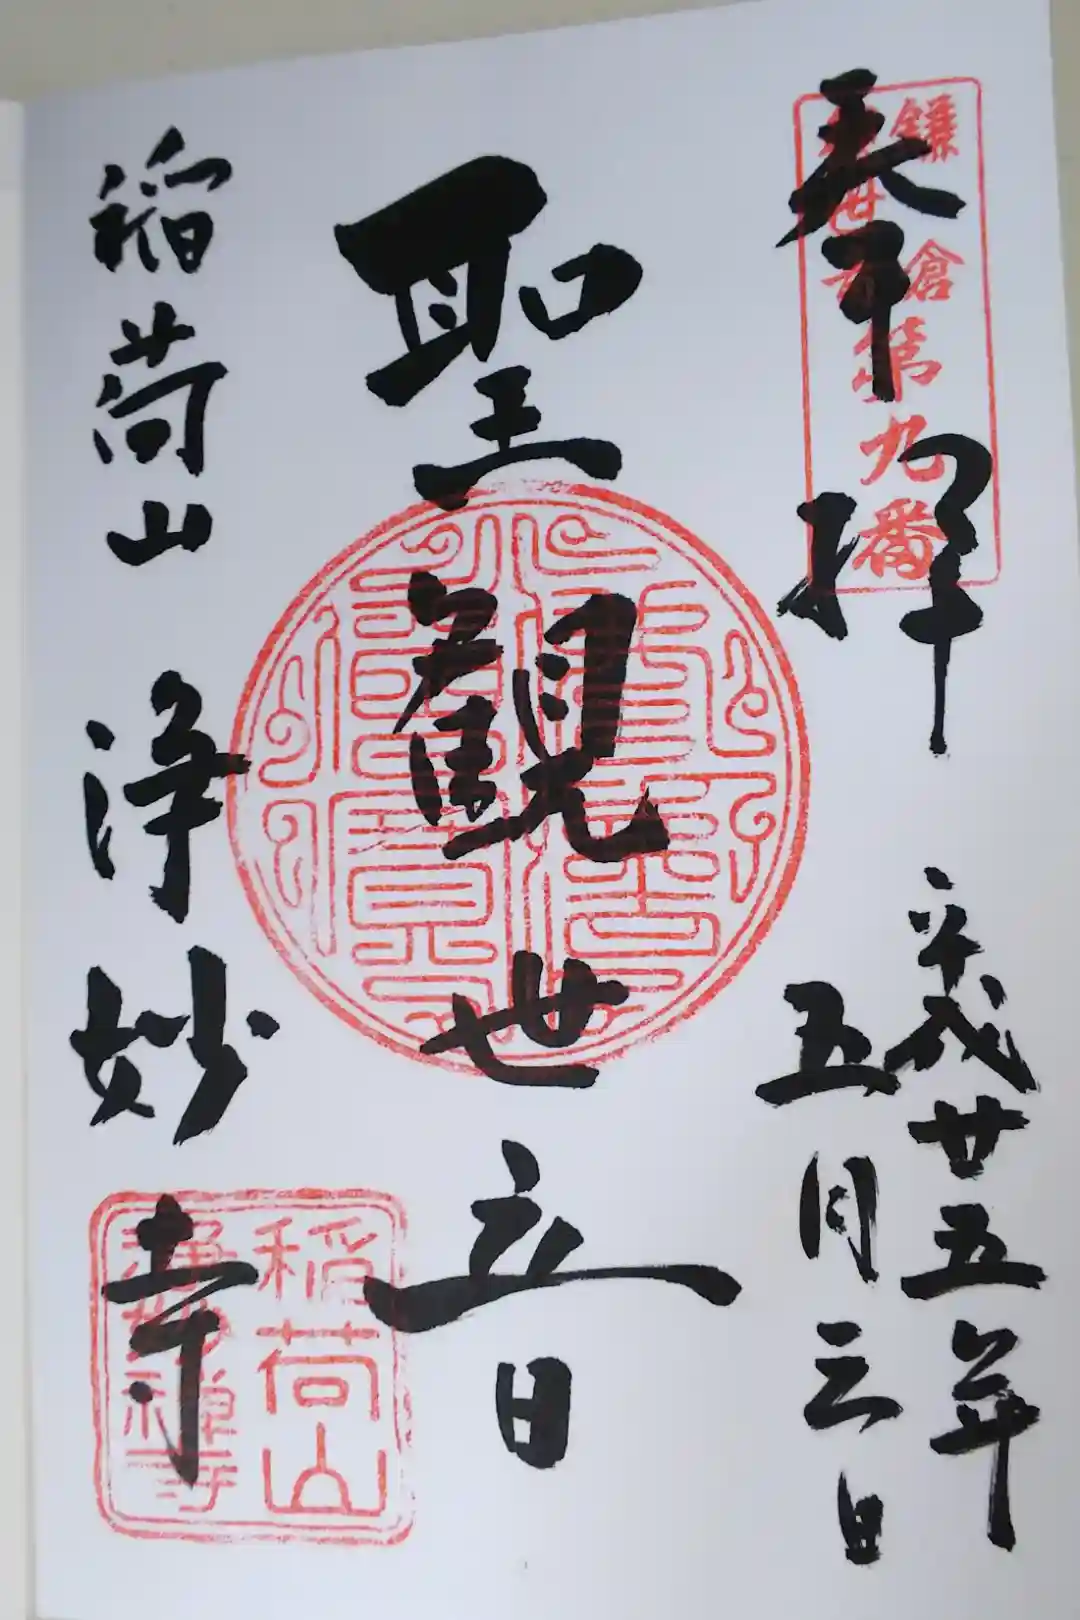 奉拝
平成廿五年
五月三日
鎌倉
第九番
聖観世音
稲荷山 浄妙寺
稲荷山
浄妙禅寺